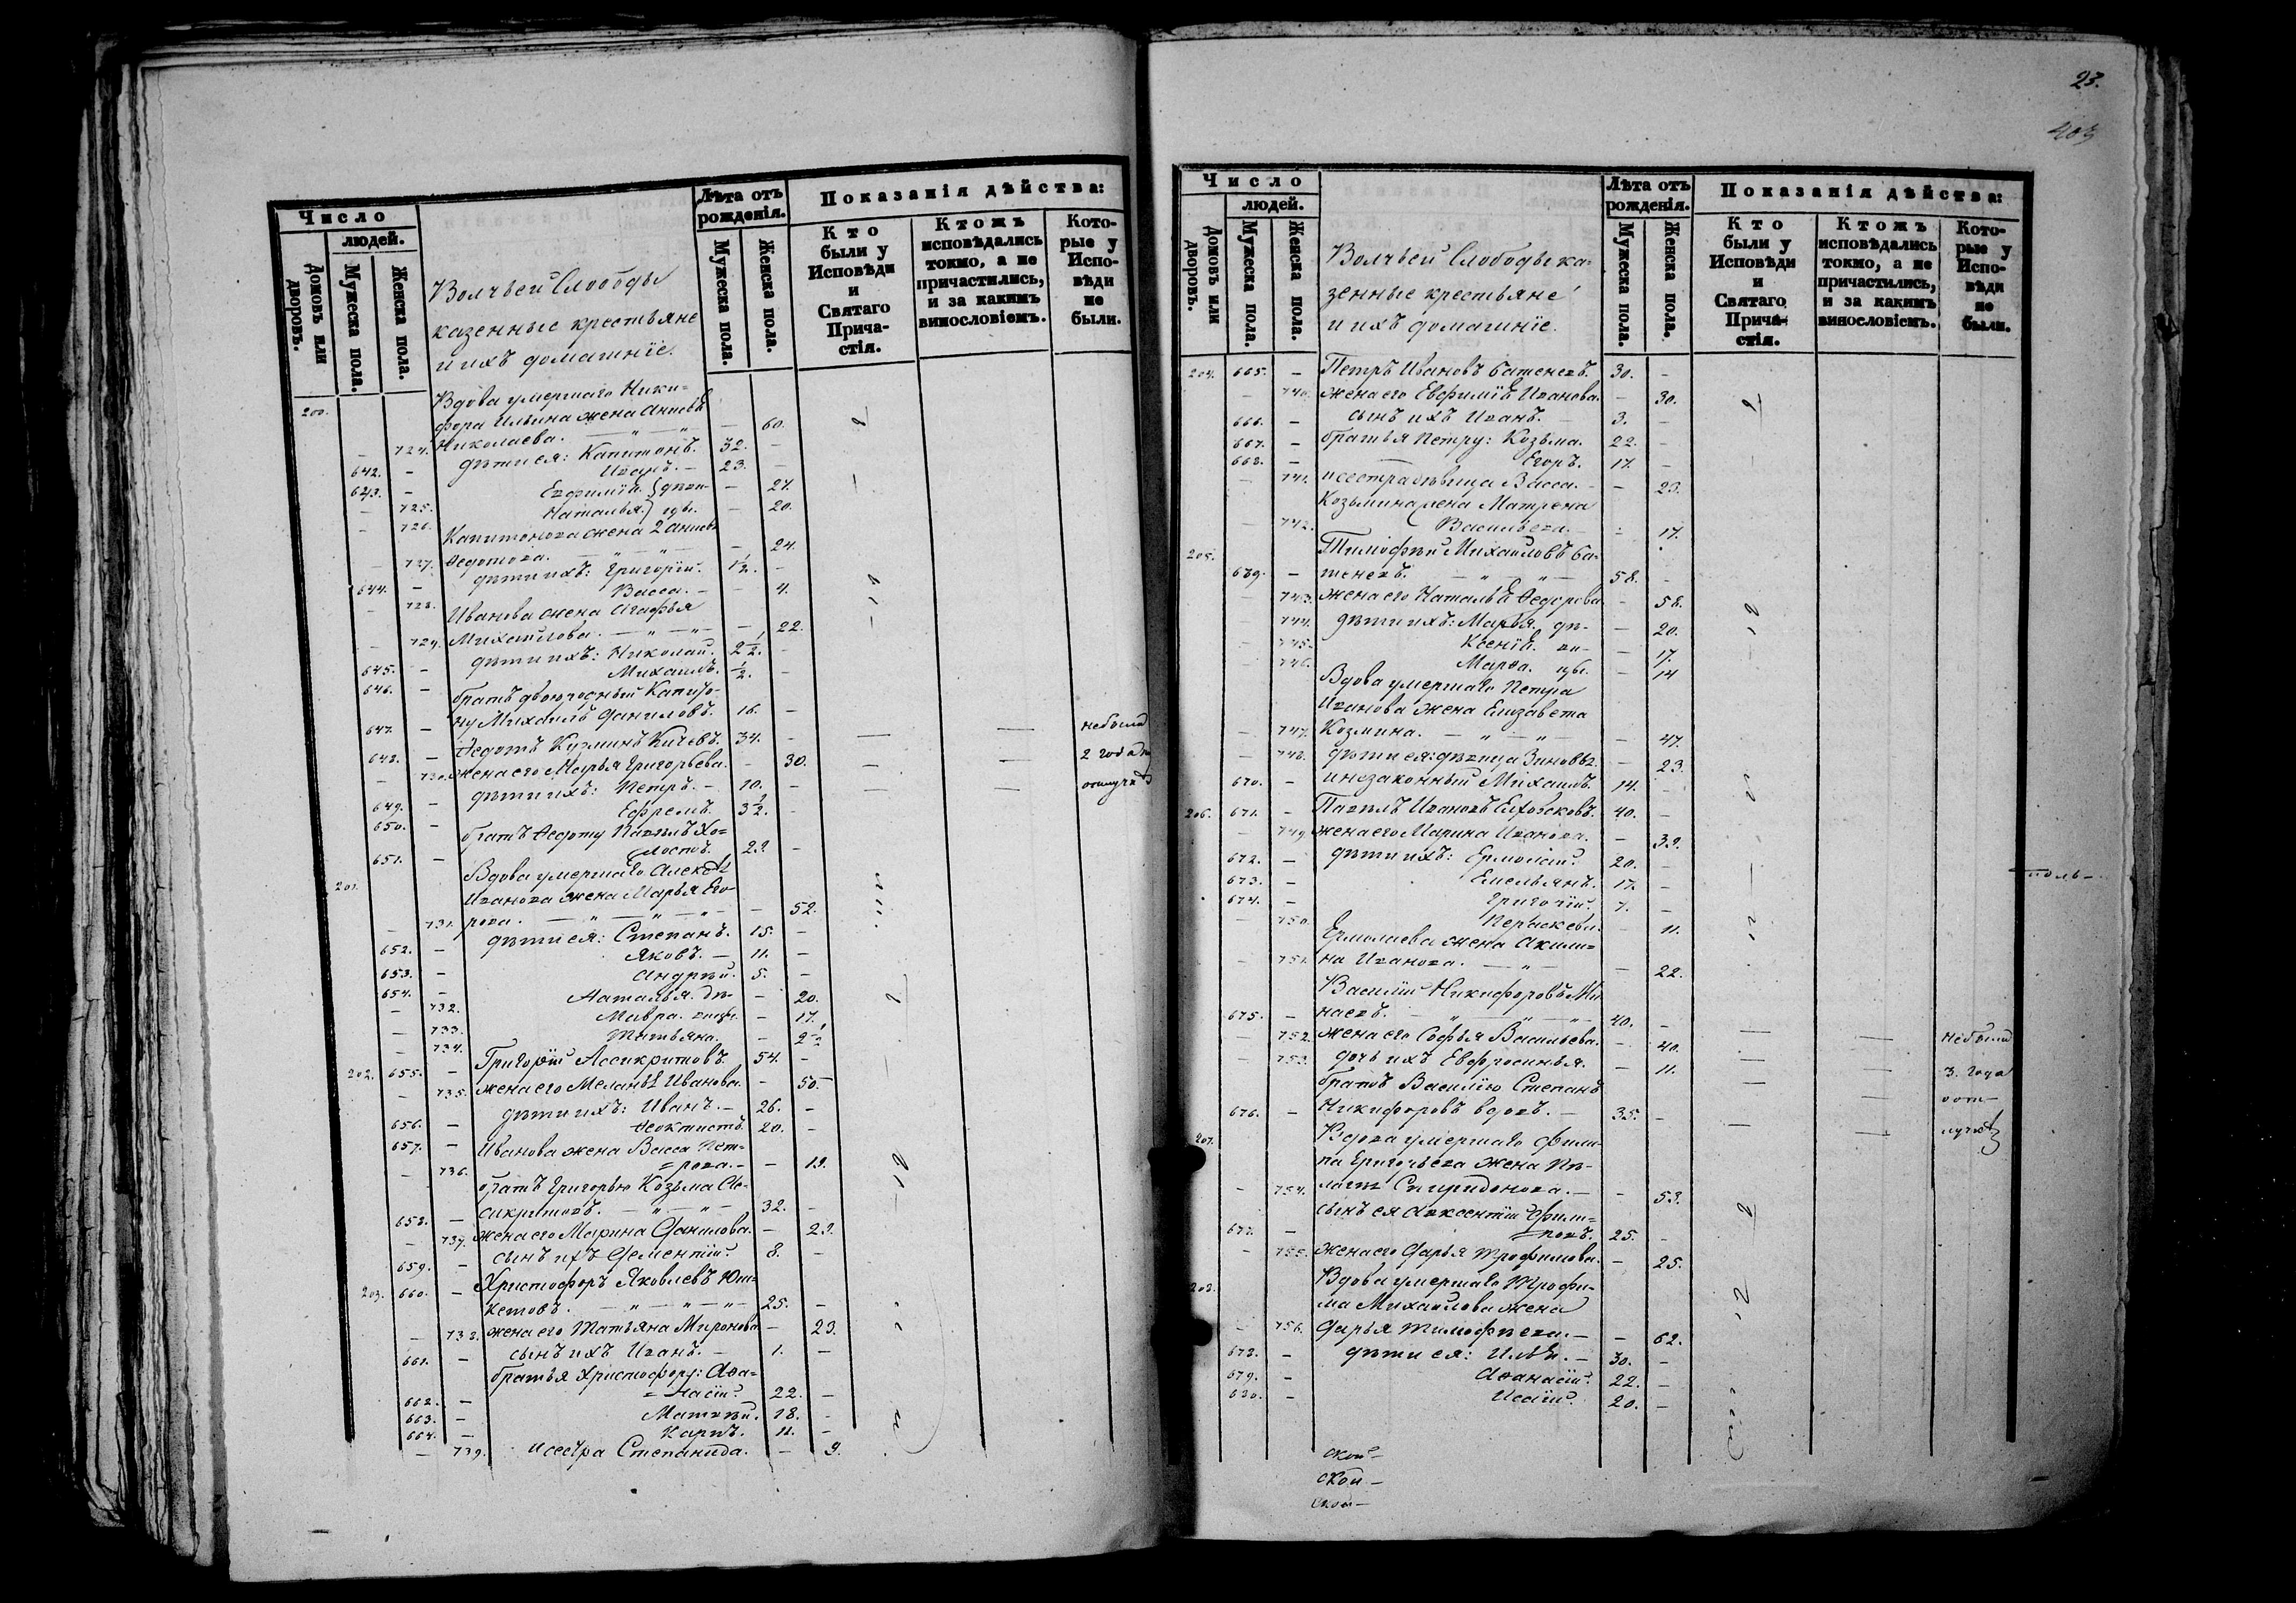 Число
людей.
Домовъ или дворовъ.
Мужеска пола.
Женска пола.
Волчьей Слободы
казенные крестьяне
и ихъ домашніе.
Лѣта отъ рожденія.
Мужеска пола.
Женска пола.
Показанія дѣйства:
Кто были у Исповѣди и Святаго Причастія.
Ктожъ исповѣдались токмо, а не причастились, и за какимъ винословіемъ.
Которые у Исповѣди не были.
200. Вдова умершаго Ники=
фора Ильина жена
724. Николаева. — 60.
642. — дѣти ея: Капитонъ. 32. —
643. — Иванъ. — 23. —
— 725. Евфимія. — 27.
— 726. Наталья. — 20.
Капитонова жена
— 727. Федотова. — 24.
644. — дѣти ихъ: Григорій. 1/2. —
— 728. Васса. — 4.
Иванова жена Агафья
— 729. Михайлова. — 22.
645. — дѣти ихъ: Николай. 2 1/2. —
646. — Михаилъ. 1/2. —
братъ двоюродный Капито-
647. — ну Михаилъ Даниловъ. 16. —
648. — Федотъ Кузминъ Кичевъ. 34. — — — небыли
— 730. жена его Марья Григорьева. — 30. — — 2 года
649. — дѣти ихъ: Петръ. — 10. — — —
650. — Ефремъ. 3 1/2. —
братъ Федоту Павелъ Хо=
651. — лостъ. 29. —
201. Вдова умершаго
Иванова жена Марья Его-
— 731. рова. — 52.
652. — дѣти ея: Степанъ. 15. —
653. — Яковъ. — 11. —
654. — Андрей. 5. —
— 732. Наталья. — 20.
— 733. Мавра. — 17.
— 734. Татьяна. — 2 1/2
202. 655. — Григорій Ассикритовъ. 54. —
— 735. жена его Меланья Иванова. — 50.
656. — дѣти ихъ: Иванъ. — 26. —
657. — Феоктистъ. 20. —
Иванова жена Васса Пет=
— 736. =рова. — — 19.
братъ Григорью Козьма Ас-
658. — сикритовъ. 32. —
— 737. жена его Марина Данилова. — 29.
659. — сынъ ихъ Дементій. 8. —
203. 660. — Христофоръ Яковлевъ Юш=
кетовъ. 25. —
— 738. жена его Татьяна Миронова — 23.
661. — сынъ ихъ Иванъ. — 1. —
братья Христофору: Афа=
662. — =насій. 22. —
663. — Матвей. 18. —
664. — Карпъ. 11. —
— 739. и сестра Степанида. — 9.
23.
403
Число
людей.
Домовъ или дворовъ.
Мужеска пола.
Женска пола.
Волчьей Слободы ка-
зенные крестьяне
и ихъ домашніе.
Лѣта отъ рожденія.
Мужеска пола.
Женска пола.
Показанія дѣйства:
Кто были у Исповѣди и Святаго Причастія.
Ктожъ исповѣдались токмо, а не причастились, и за какимъ винословіемъ.
Которые у Исповѣди не были.
204. 665. — Петръ Ивановъ Батеневъ. 30. —
— 740. жена его Евфимія Иванова. — 30.
666. — сынъ ихъ Иванъ. 3. —
667. — братья Петру: Козьма. 22. —
668. — Егоръ. 17. —
— 741. и сестра дѣвица Васса. — — 23.
Козьмина жена Матрена
— 742. Васильева. — — 17.
205. Тимофей Михайловъ Ба-
669. — теневъ. 58. —
— 743. жена его Наталья Федорова — 58.
744. дѣти ихъ: Марья. дѣ- — 20.
— 745. Ксенія. ви- — 17.
— 746. Марфа. цы. — 14
Вдова умершаго Петра
Иванова жена Елизавета
— 747. Козмина. — 47.
— 748. дѣти ея: дѣвица — 23.
670. — и незаконный Михаилъ. 14. —
206. 671. — Павелъ Ивановъ 40. —
— 749. жена его Марина Иванова. — 39.
672. — дѣти ихъ: Ермолай. 20. —
673. — Емельянъ. 17. —
674. — Григорій. 7. —
— 750. — 11.
Ермолаева жена Акили=
— 751. на Иванова. — 22.
Василій Никифоровъ Ми
675. — наевъ. 40. —
— 752. жена его Софья Васильева. — 40. — — небыли
— 753. дочь ихъ Евфросинья. — 11. — — 3. года
братъ Василію Степанъ
676. — Никифоровъ вдовъ. — 35. — — — вот-
лучкѣ
207. Вдова умершаго Фили-
па Григорьева жена Пе-
— 754. лагея Спиридонова. — — 53.
сынъ ея Авксентій Фили=
677. — =повъ. 25. —
— 755. жена его Дарья Трофимова. — 25.
208. Вдова умершаго Трофи-
ма Михайлова жена
— 756. Дарья Тимофеева. — — 62.
678. — дѣти ея: Илья. — 30. —
679. — Афанасій. 22. —
680. — Исай. 20. —
ской-
ской-
ской-